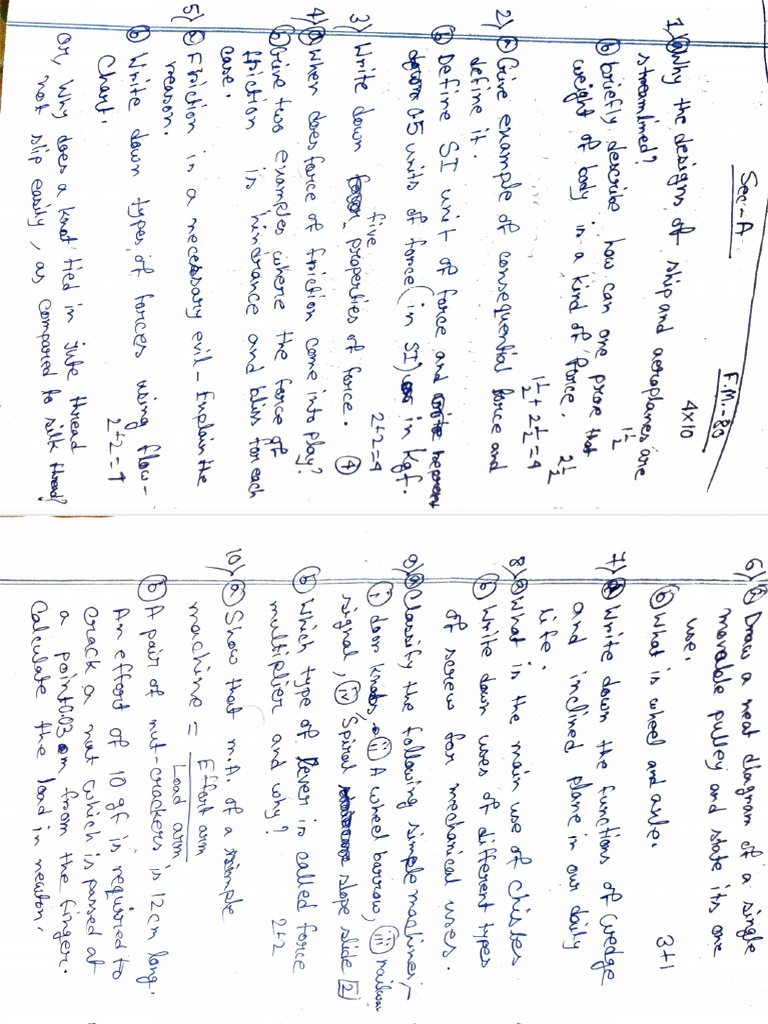 Sec-A F.M.-80
4x10
1) (a) Why the designs of ship and aeroplanes are
streamlined? 1 1/2
(b) briefly describe how can one prove that
weight of body is a kind of force. 2 1/2
1 1/2 + 2 1/2 = 4
2) (a) Give example of consequential force and
define it.
(b) Define SI unit of force and represent
0.5 units of force (in SI) in Kgf.
2+2=4
3) Write down five properties of force. (4)
4) (a) When does force of friction come into play?
(b) Give two examples where the force of
friction is hindrance and bliss for each
case.
5) (a) Friction is a necessary evil - Explain the
reason.
(b) Write down types of forces using flow-
chart. 2+2=4
or, Why does a knot tied in jute thread
not slip easily, as compared to silk thread?
6) (a) Draw a neat diagram of a single
movable pulley and state its one
use.
(b) What is wheel and axle. 3+1
7) (a) Write down the functions of wedge
and inclined plane in our daily
life.
8) (a) What is the main use of chisles
(b) Write down uses of different types
of screw for mechanical uses.
9) (a) Classify the following simple machines;-
(i) door knobs, (ii) A wheel barrow, (iii) railway
signal, (iv) Spiral slope slide [2]
(b) Which type of lever is called force
multiplier and why? 2+2
10) (a) Show that m.A. of a simple
machine = Effort arm / Load arm
(b) A pair of nut-crackers is 12 cm long.
An effort of 10 gf is required to
crack a nut which is passed at
a point 0.03 m from the finger.
Calculate the load in newton.